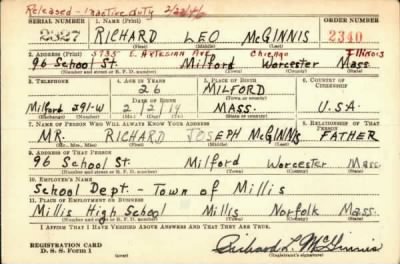 Released - Inactive duty 2/23/46
SERIAL NUMBER 1. NAME (Print) ORDER NUMBER
2327 RICHARD LEO McGINNIS 2340
(First) (Middle) (Last)
2. ADDRESS (Print) 5735 ARTESIAN AVE. Chicago Illinois
96 School St. Milford Worcester Mass.
(Number and street or R. F. D. number) (Town) (County) (State)
3. TELEPHONE 4. AGE IN YEARS 5. PLACE OF BIRTH 6. COUNTRY OF CITIZENSHIP
26 MILFORD
(Town or county)
DATE OF BIRTH
Milford 291-W 2 2 14 MASS. U.S.A.
(Exchange) (Number) (Mo.) (Day) (Yr.) (State or country)
7. NAME OF PERSON WHO WILL ALWAYS KNOW YOUR ADDRESS 8. RELATIONSHIP OF THAT PERSON
MR. RICHARD JOSEPH McGINNIS FATHER
(Mr., Mrs., Miss) (First) (Middle) (Last)
9. ADDRESS OF THAT PERSON
96 School St. Milford Worcester Mass.
(Number and street or R. F. D. number) (Town) (County) (State)
10. EMPLOYER'S NAME
School Dept. - Town of Millis
11. PLACE OF EMPLOYMENT OR BUSINESS
Millis High School Millis Norfolk Mass.
(Number and street or R. F. D. number) (Town) (County) (State)
I AFFIRM THAT I HAVE VERIFIED ABOVE ANSWERS AND THAT THEY ARE TRUE.
REGISTRATION CARD
D. S. S. Form 1 Richard L. McGinnis
(Registrant's signature)